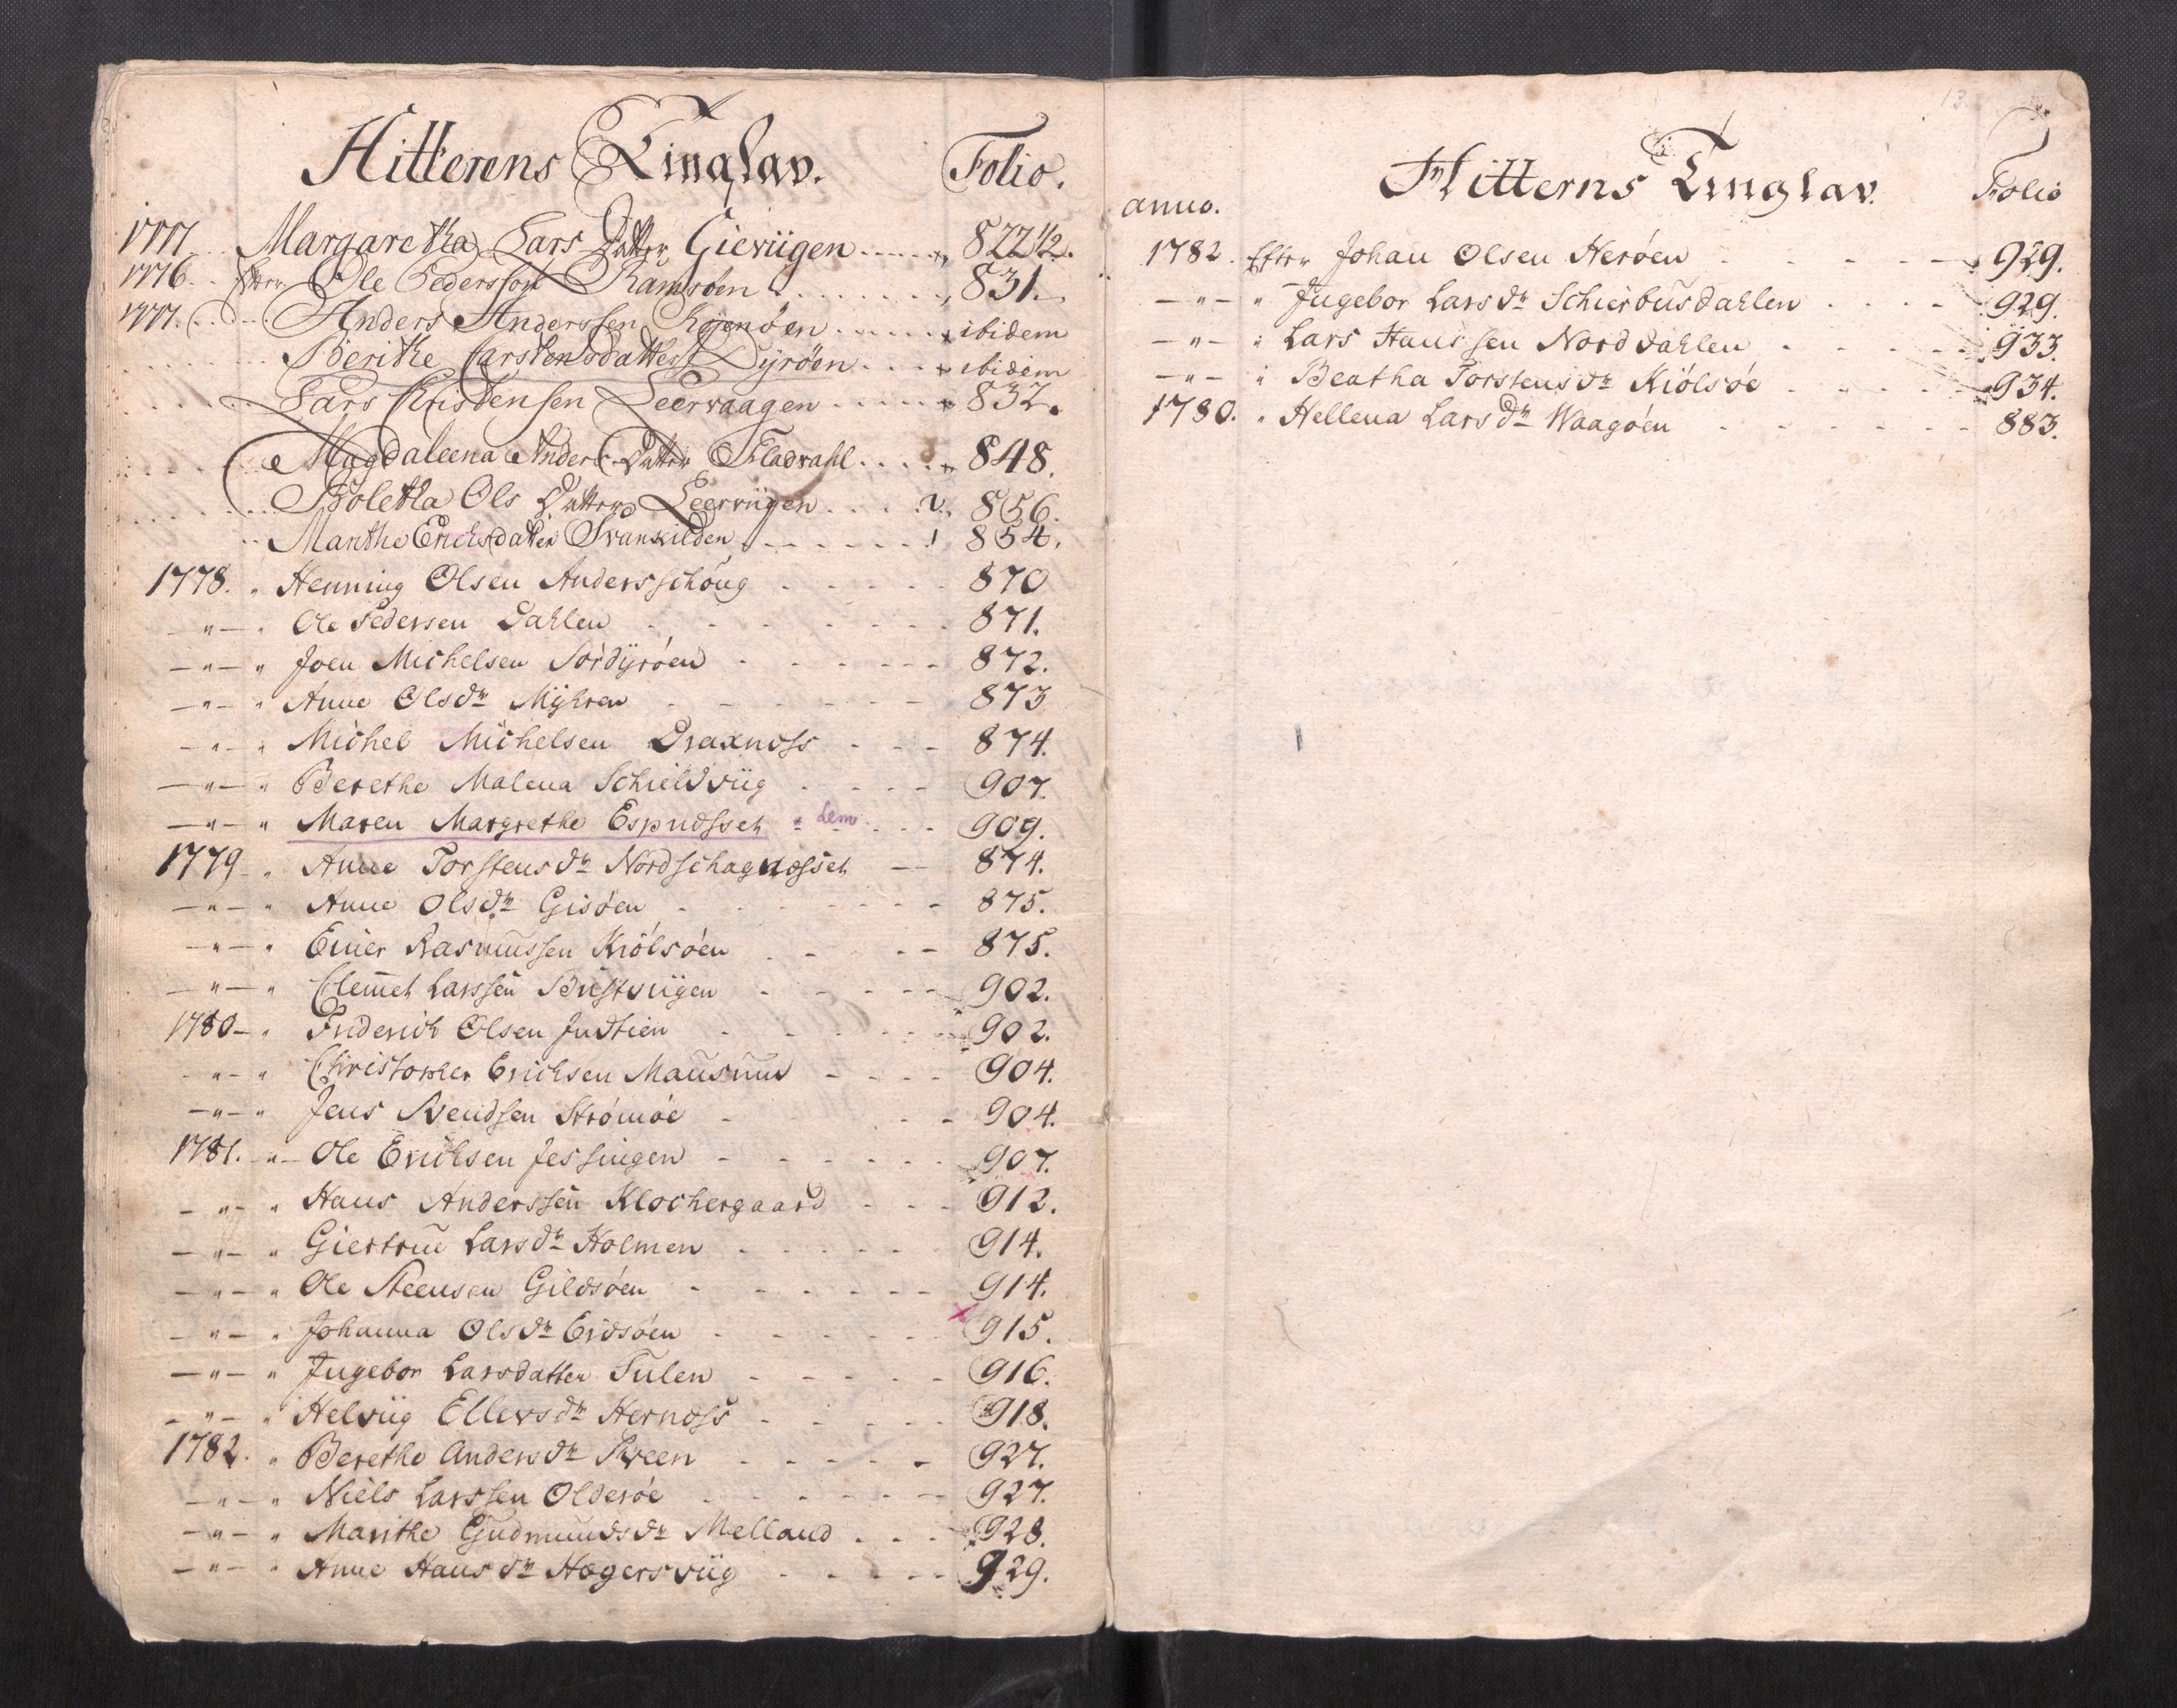 Hitterens Tinglav. Folio.
1777 Margaretha Lars Datter Gievügen 822 1/2.
1776 Efter Ole Pedersson Ramsöen 831.
1777. Anders Anderssen ibidem
Berithe Carstensdatter Dyröen ibidem
Lars Christensen Leervaagen 832.
Magdaleena Anders Datter Fladvahl 848.
Boletha Ols Datter Leervügen 856.
Marithe Erichsdatter Svankilden 854.
1778. " Henning Olsen Andersschoug 870
—"— " Ole Pedersen Dahlen 871.
—"— " Joen Michelsen Sördÿröen 872.
—"— " Anne Olsdr Mÿhren 873
—"— " Michel Michelsen Draxnæss 874.
—"— " Berethe Malena Schieldvüg 907.
—"— " Maren Margrethe Espnæsset 909.
1779 " Anne Torstensdr Nordschagnæsset 874.
—"— " Anne Olsdr Gisöen 875.
—"— " Einer Rasmussen Kiölsöen 875.
—"— " Clemet Larssen Bustvügen 902.
1780 — " Friderich Olsen Jndtien 902.
—"— " Christopher Erichsen Mausund 904.
—"— " Jens Svendsen Strömöe 904.
1781. " Ole Erichsen Jessingen 907.
—"— " Hans Anderssen Klochergaard 912.
—"— " Giertrue Larsdr Holmen 914.
—"— " Ole Steensen Gildsöen 914.
—"— " Johanna Olsdr Eidsöen 915.
—"— " Jngebor Larsdatter Tulen 916.
—"— " Helvüg Ellersdr Hernæss 918.
1782. " Berethe Andersdr Sveen 927.
—"— " Niels Larssen Olderöe 927.
—"— " Marithe Gudmundsdr Melland 928.
—"— " Anne Hansdr Hægersvüg 929.
13.
Hitterns Tinglav. Folio
anno.
1782. Efter Johan Olsen Heröen 929.
—"— " Jngebor Larsdr Schierbusdahlen 929.
—"— " Lars Hanssen Norddahlen 933.
—"— " Beatha Torstensdr Kiölsöe 934.
1780. " Hellena Larsdr Waagöen 883.